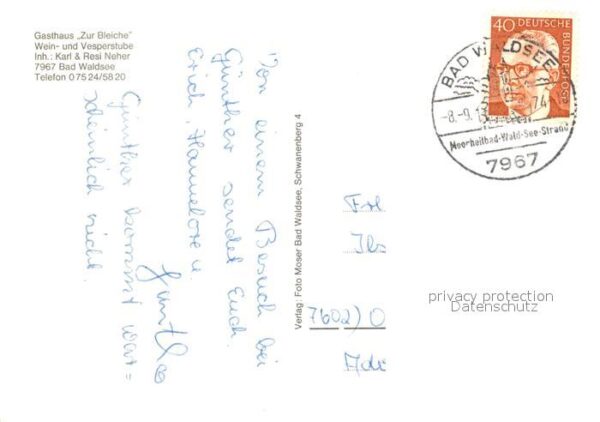 Gasthaus „Zur Bleiche"
Wein- und Vesperstube
Inh.: Karl & Resi Neher
7967 Bad Waldsee
Telefon 0 75 24/58 20
Von einem Besuch bei
Günther sendet Euch
Erich, Hannelore u.
Günther kommt wahr=
scheinlich nicht.
Verlag: Foto Moser Bad Waldsee, Schwanenberg 4
40 DEUTSCHE BUNDESPOST
BAD WALDSEE
-8.-9.
74
Moorheilbad-Wald-See-Strand
7967
7602) O
privacy protection
Datenschutz